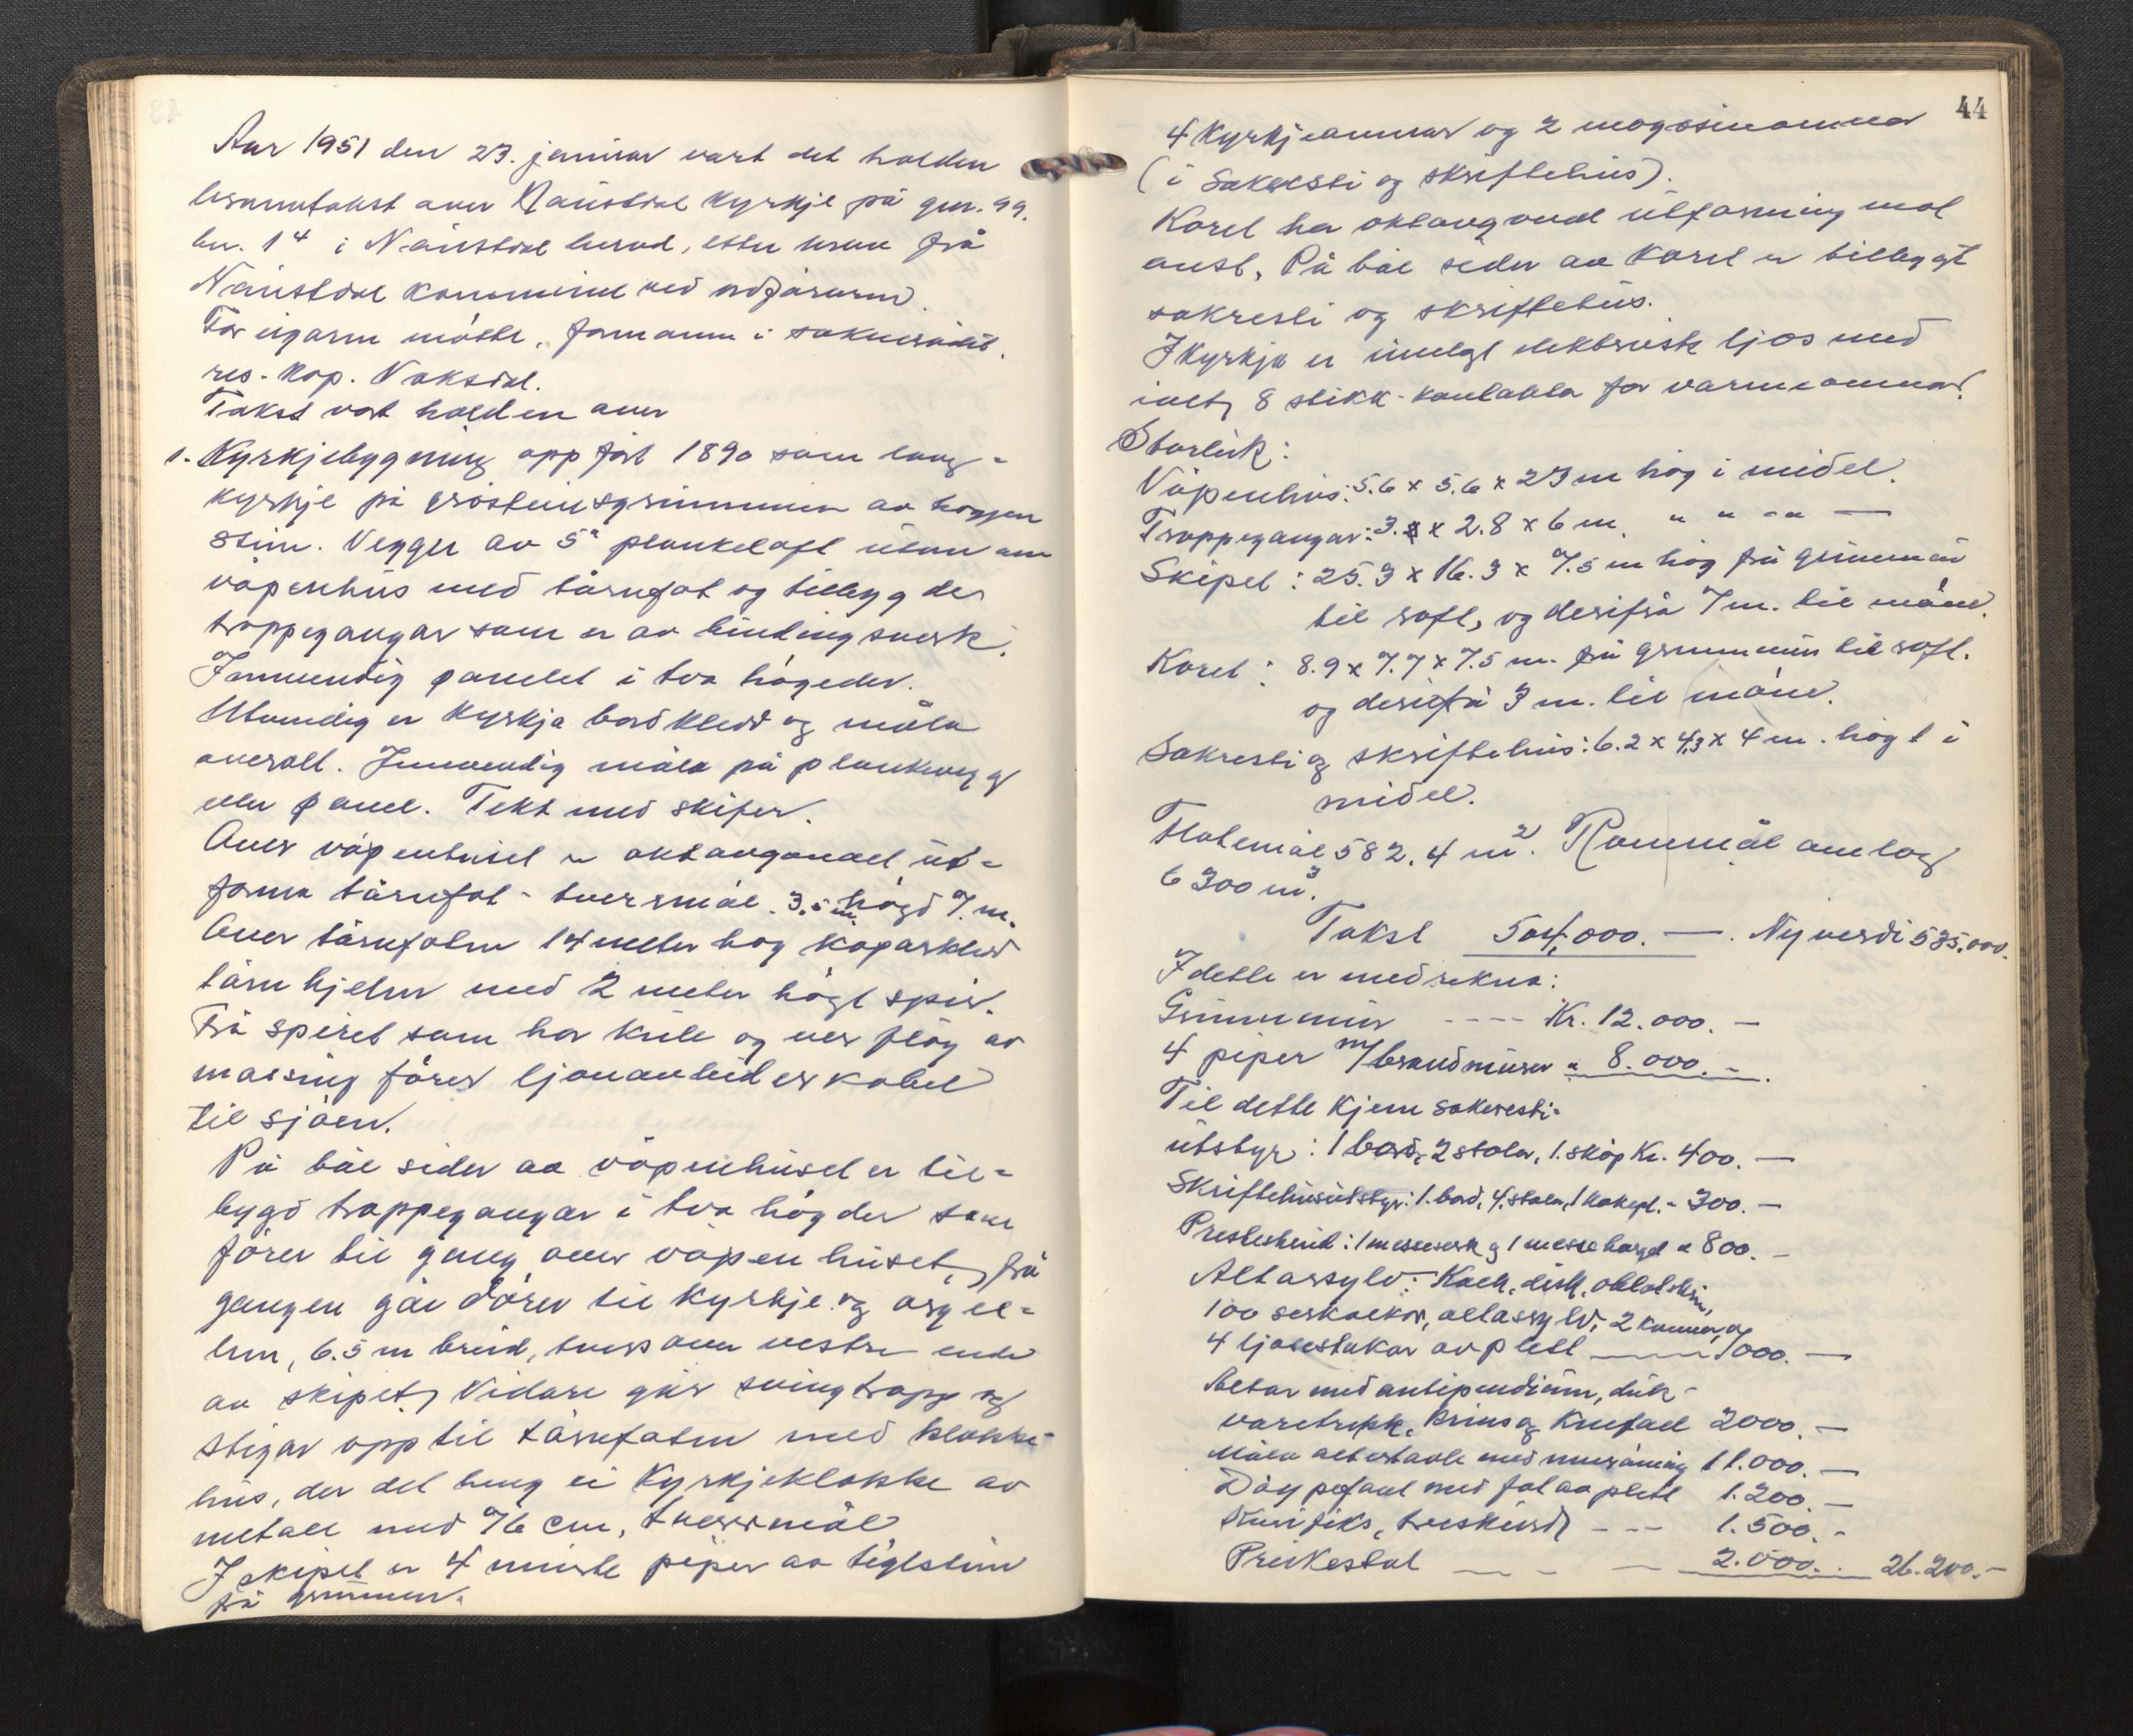 Aar 1951 den 23. januar vart det halden
branntakst over Naustdal kyrkje på gnr. 99.
bnr. 14 i Naustdal herad, etter krav frå
Naustdal kommune ved ordføraren.
For eigaren møtte, formann i soknerådet.
res. kap. Vaksdal.
Takst vart halden over
1. Kyrkjebygning oppført 1890 som lang-
kyrkje på gråsteinsgrunnmur av hoggen
stein. Vegger av 5" plankelaft utan om
våpenhus med tårnfot og tilbygde
trappegangar som er av bindingsverk.
Innvendig panelet i two høgder.
Utvendig er kyrkja bordkledd og måla
overalt. Innvendig måla på plankevegg
eller panel. Tekt med skifer.
Over våpenhuset er oktavgonael ut-
forma tårnfot - tverrmål 3.5 m høgd 7. m.
Over tårnfoten 14 meter høg koparkledd
tårnhjelm med 2 meter høgt spir.
Frå spiret som har kule og verfløy av
messing fører ljonavleidarkabel
til sjøen.
På båe sider av våpenhuset er til-
bygd trappegangar i tvo høgder som
fører til gang over våpenhuset, frå
gangen går dører til kyrkje og orgel-
lem, 6.5 m breid, tvers over vestre ende
av skipet, Vidare går svingtrapp og
stigar opp til tårnfoten med klokke-
hus, der det heng ei kyrkjeklokke av
metall med 76 cm, tverrmål
I skipet er 4 murte piper av teglstein
frå grunnen.
44
4 kyrkjeomnar og 2 magasinomnar
(i Sakresti og skriftehus).
Koret har oktavgonael utforming mot
aust. På båe sider av koret er tilbygt
sakresti og skriftehus.
I kyrkja er innlagt elektrisk ljos med
ialt 8 stikk-kontakta for varmeomnar.
Storleik:
Våpenhus: 5.6 x 5.6 x 23 m høg i midel.
Trappegangar: 3. x 2.8 x 6 m. " " - " —
Skipet: 25.3 x 16.3 x 7.5 m høg frå grunnmur
til raft, og derifrå 7 m. til møne.
Koret: 8.9 x 7.7 x 7.5 m. frå grunnmur til raft.
og derifrå 3 m. til møne.
Sakresti og skriftehus: 6.2 x 4,3 x 4 m. høgt i
midel.
Flatemål 582.4 m². Rommål omlag
6300 m³.
Takst 504,000. — . Nyverdi 535.000.
I dette er medrekna:
Grunnmur ---- Kr. 12.000. —
4 piper m/brandmurar " 8.000. —.
Til dette kjem sakresti-
utstyr: 1 bord, 2 stolar, 1. skåp Kr. 400. —
Skriftehusutstyr: 1. bord, 4. stolar, 1 kakepl. - 300. —
Presteskrud: 1 messeserk og 1 messehagel " 800. —
Altarsylv: Kalk, disk, oblatskrin,
100 serkalkar, altarsylv, 2 kanner, og
4 ljosestakar av plett —— 7000. —
Altar med antipendium, duk-
varetrekk, krins og knefall 2000. —
Måla altertavle med innraming 11.000. —
Døypefont med fat av plett 1.200. —
Krusifiks, treskurd --- 1.500. -
Preikestol — - — 2.000. . 26.200. —